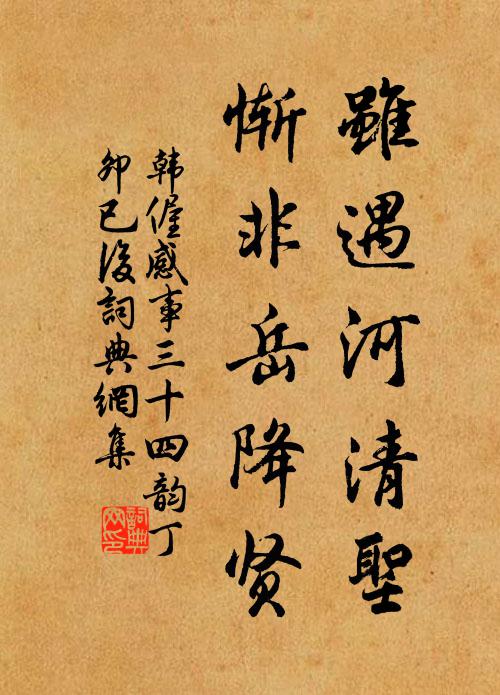 雖遇河清聖
慚非岳降贤
韩偓感事三十四韵丁
卯已後詞典網集
詞典
网印